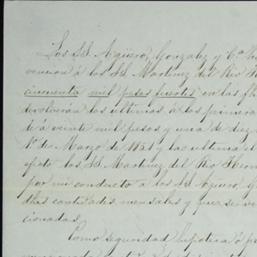 Los SS Agüero, Gonzalez y Cª ha
vencion á los SS Martinez del Rio H
cincuenta mil pesos fuertes en las
devolverán los ultimos á los primero
á veinte mil pesos y una de diez
1º de Marzo de 1851 y la ultima el
efecto los SS Martinez del Rio Herm
por mi conducto á los SS Agüero, G
dhas cantidades mensales y que se
cionadas.
Como seguridad hipoteca